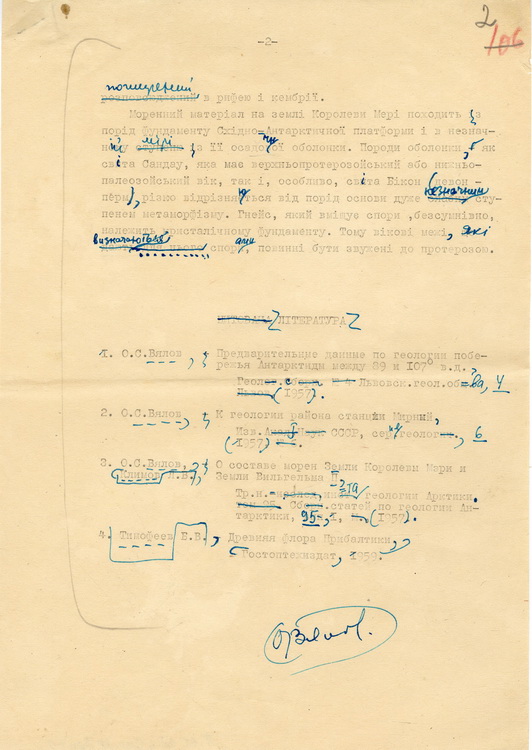 2
106
-2-
поширений
розповсюджений в рифею і кембрії.
Моренний матеріал на землі Королеви Мері походить з
порід фундаменту Східно-Антарктичної платформи і в незнач-
ній мірі з її осадової оболонки. Породи оболонки, як
світа Сандау, яка має верхньопротерозойський або нижньо-
палеозойський вік, так і, особливо, світа Бікон (девон -
перм), різко відрізняються від порід основи дуже незначним сту-
пенем метаморфізму. Гнейс, який вміщує спори, безсумнівно,
належить кристалічному фундаменту. Тому вікові межі, які
визначаються спорами, повинні бути звужені до протерозою.
ЛІТЕРАТУРА
1. О.С.Вялов, Предварительные данные по геологии побе-
режья Антарктиды между 89 и 107° в.д.,
Львовск.геол.об-ва, 4
Львов, 1957.
2. О.С.Вялов, К геологии района станции Мирный,
Изв. СССР, сер. геолог., 6
(1957).
3. О.С.Вялов, О составе морен Земли Королевы Мэри и
Климов Л.В., Земли Вильгельма II,
Тр. ин-та геологии Арктики.
Сборн. статей по геологии Ан-
тарктики, 95, (1957).
4. Тимофеев Б.В., Древняя флора Прибалтики,
Гостоптехиздат, 1959.
О.Вялов.